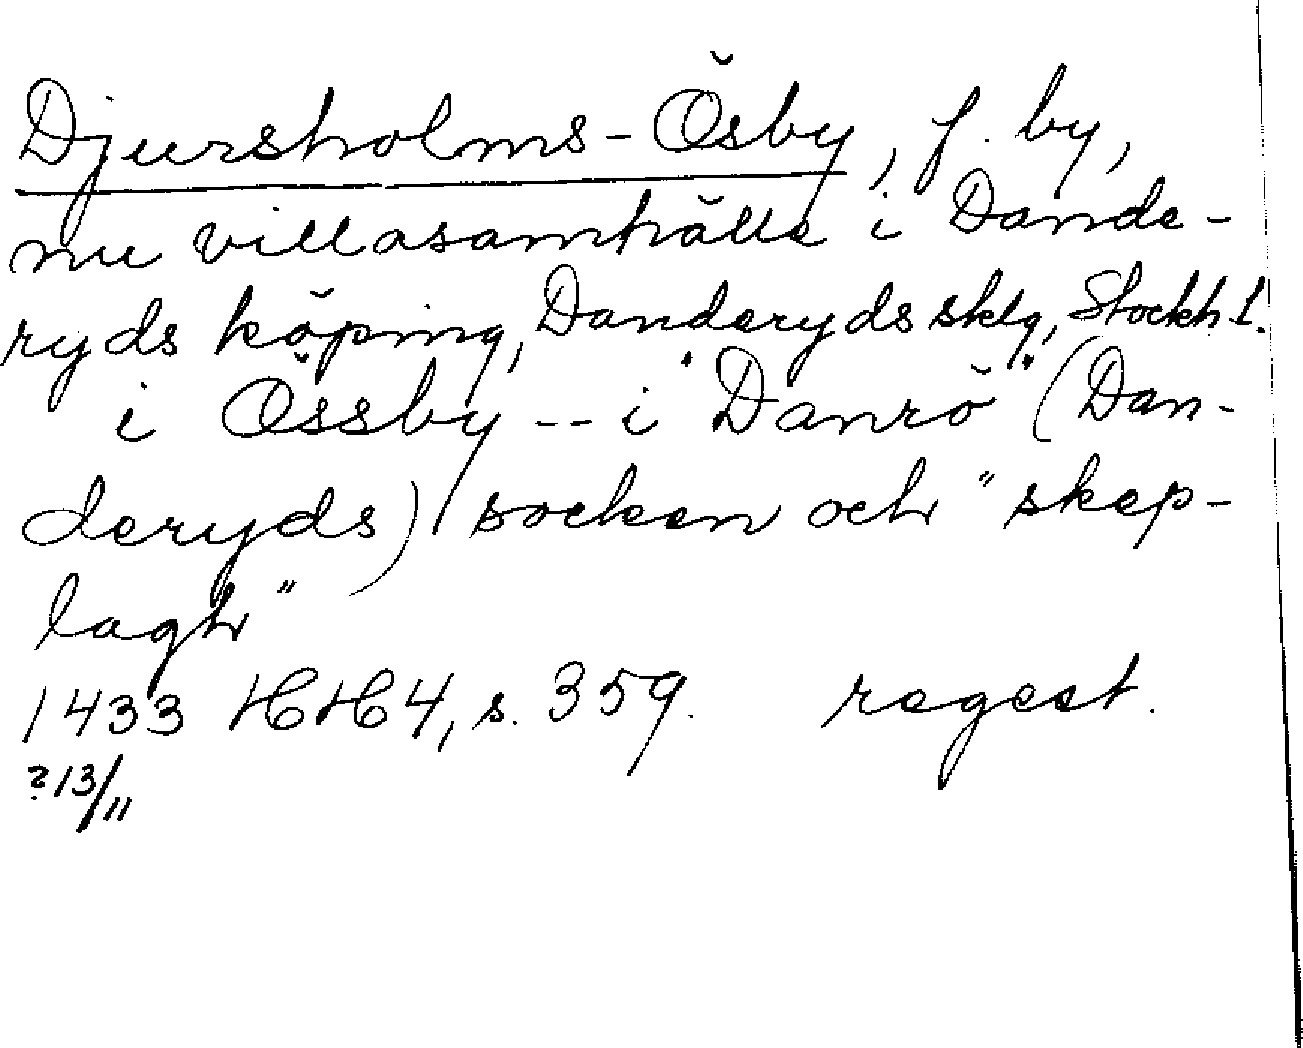 Djursholms-Ösby, f. by,
nu villasamhälle i Dande-
ryds köping, Danderyds sklg, Stockh. l.
i Össby -- i "Danrö" (Dan-
deryds) socken och "skep-
lagh"
1433 HH 4, s. 359. regest.
? 13/11